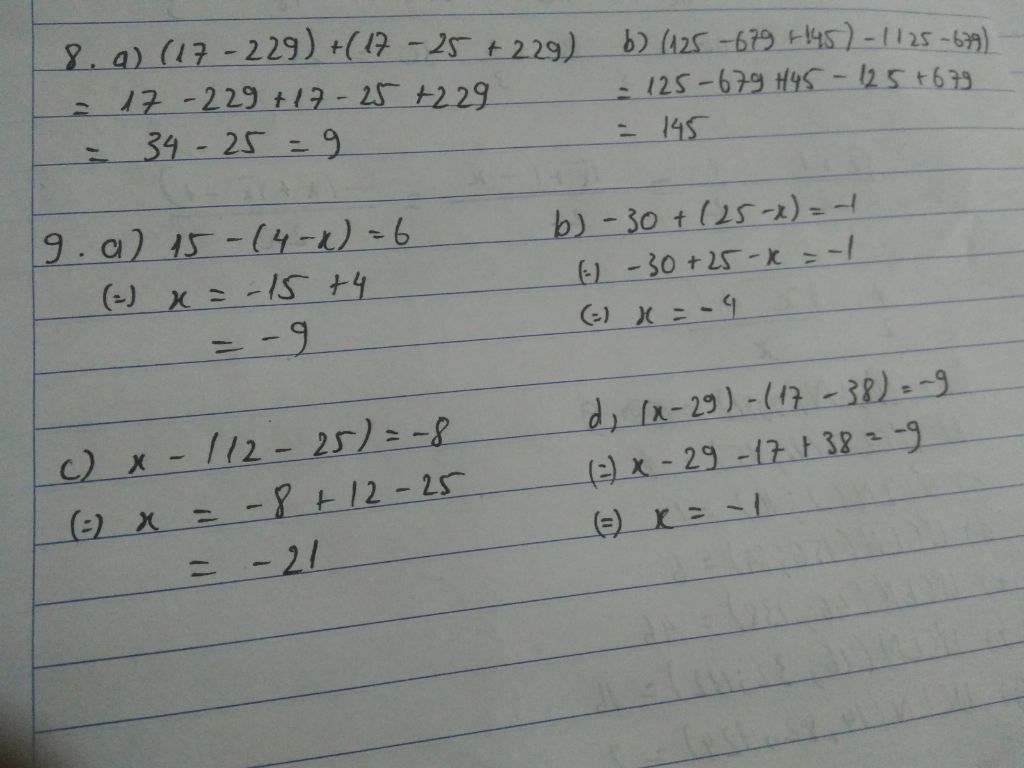 8. a) (17 - 229) + (17 - 25 + 229)
= 17 - 229 + 17 - 25 + 229
= 34 - 25 = 9
b) (125 - 679 + 145) - (125 - 679)
= 125 - 679 + 145 - 125 + 679
= 145
9. a) 15 - (4 - x) = 6
(=) x = -15 + 4
= -9
b) - 30 + (25 - x) = -1
(=) - 30 + 25 - x = -1
(=) x = -4
c) x - (12 - 25) = -8
(=) x = -8 + 12 - 25
= -21
d, (x - 29) - (17 - 38) = -9
(=) x - 29 - 17 + 38 = -9
(=) x = -1